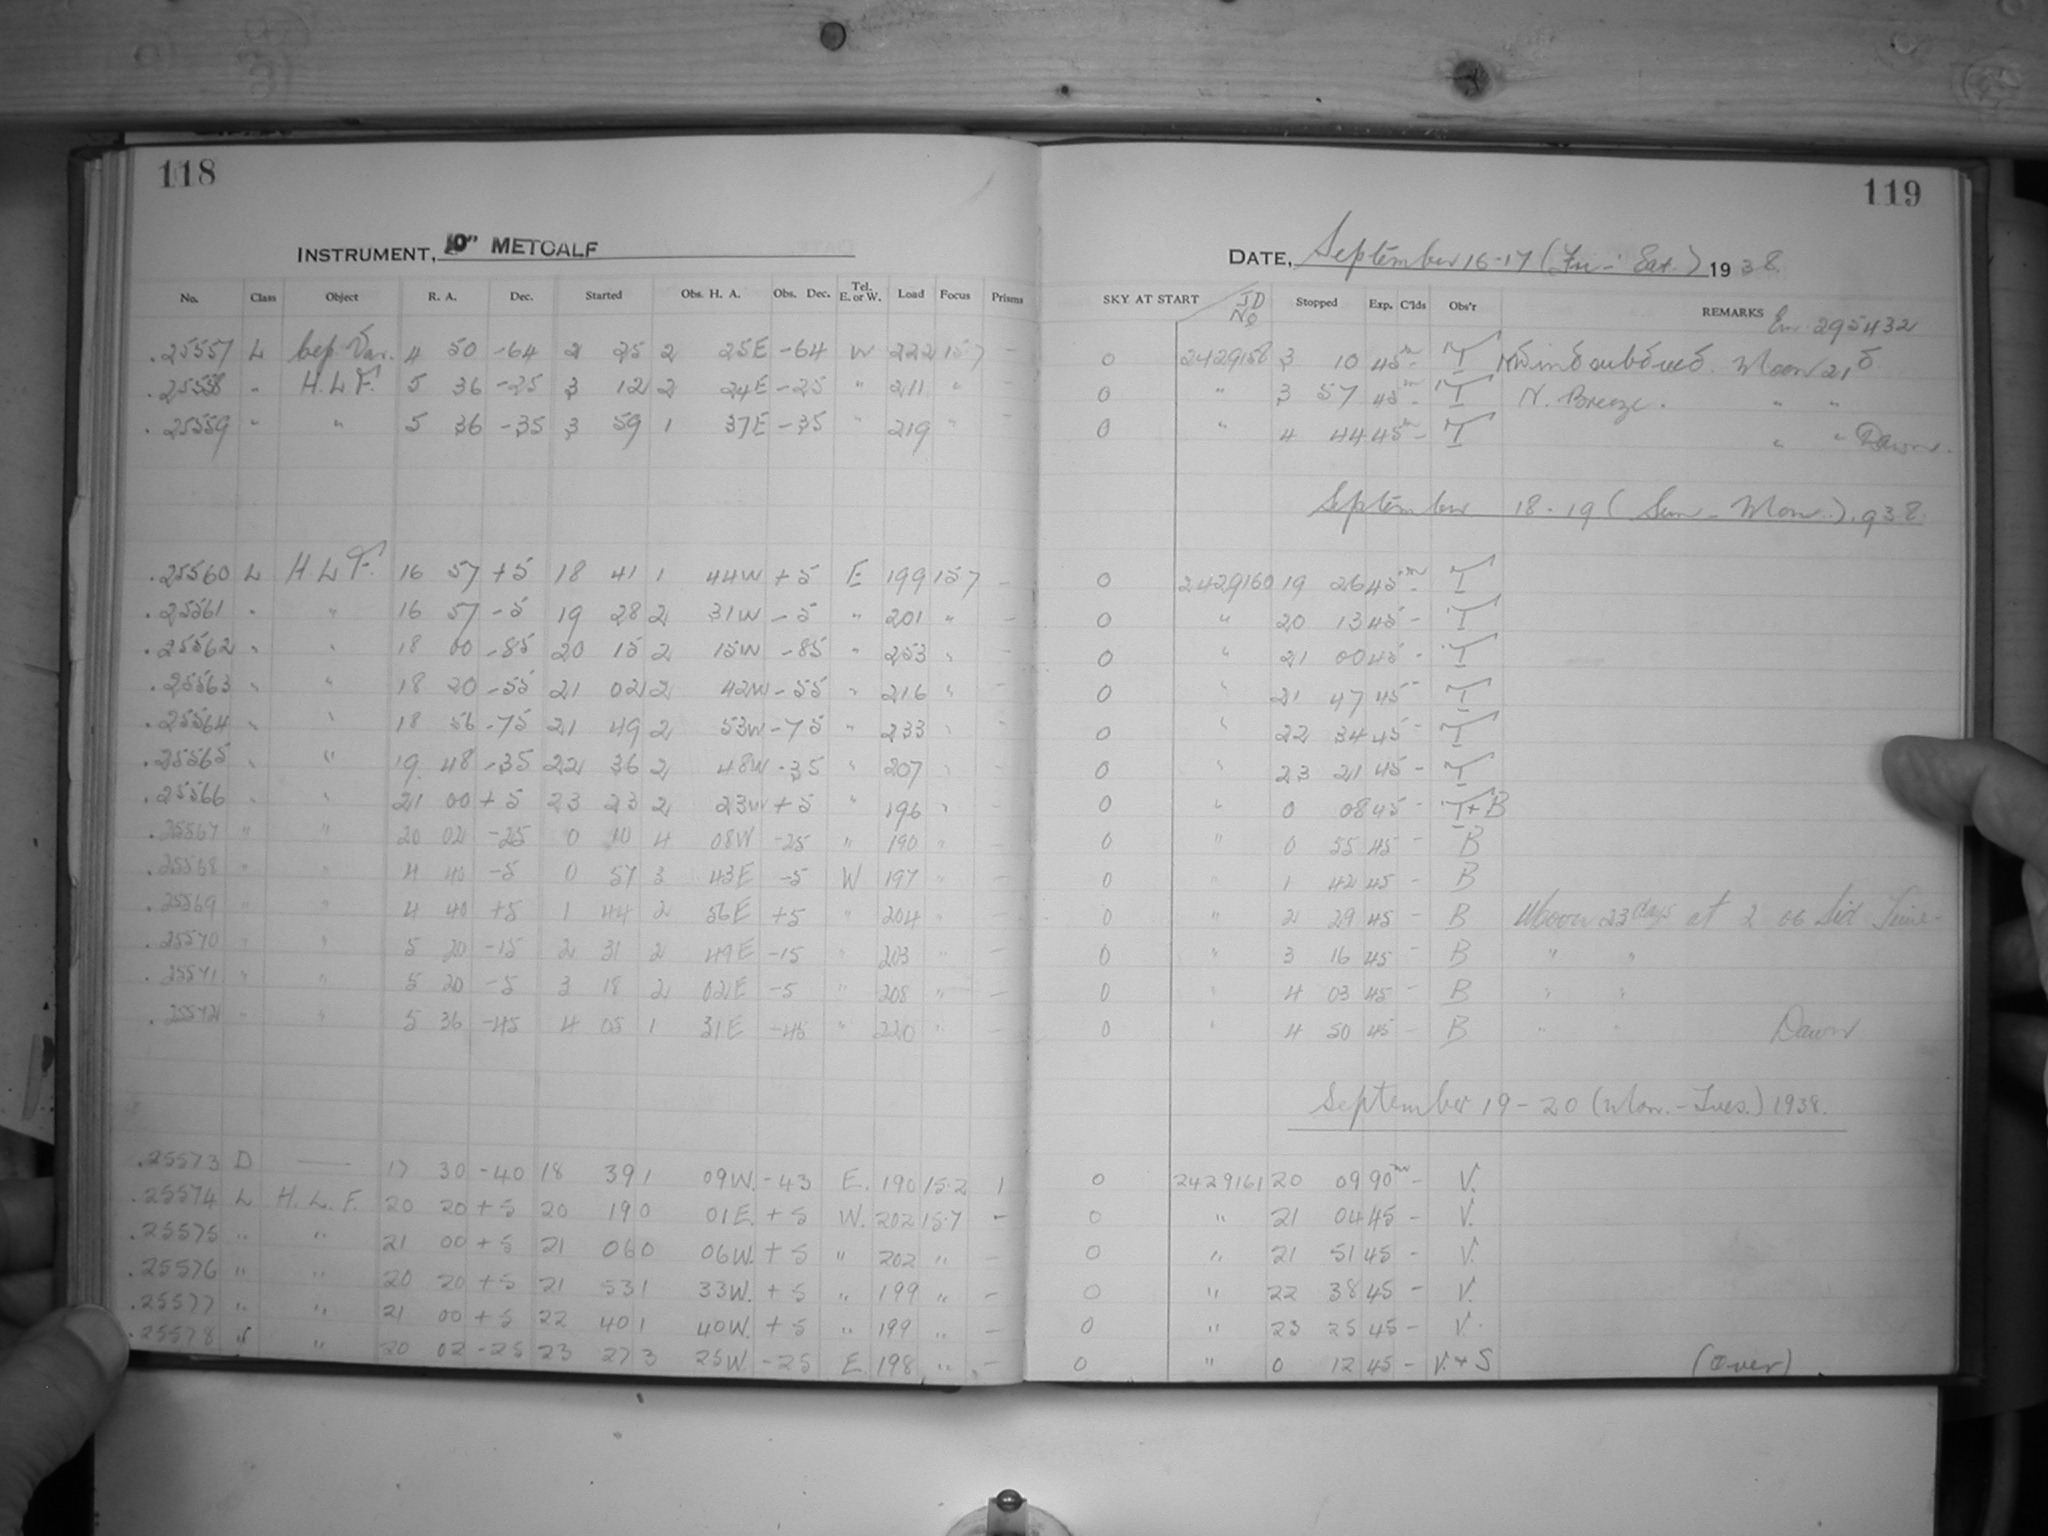 118
INSTRUMENT, 10" METCALF
No. Class Object R. A. Dec. Started Obs. H. A. Obs. Dec. Tel. E. or W. Load Focus Prisms
.25557 L Cep. Var. 4 50 -64 2 25 2 25E -64 W 222 15.7 -
.25558 " H.L.F. 5 36 -25 3 12 2 24E -25 " 211 " -
.25559 " " 5 36 -35 3 59 1 37E -35 " 219 " -
.25560 L H.L.F. 16 57 +5 18 41 1 44W +5 E 199 15.7 -
.25561 " " 16 57 -5 19 28 2 31W -5 " 201 " -
.25562 " " 18 00 -85 20 15 2 15W -85 " 253 " -
.25563 " " 18 20 -55 21 02 2 42W -55 " 216 " -
.25564 " " 18 56 -75 21 49 2 53W -75 " 233 " -
.25565 " " 19 48 -35 22 36 2 48W -35 " 207 " -
.25566 " " 21 00 +5 23 23 2 23W +5 " 196 " -
.25567 " " 20 02 -25 0 10 4 08W -25 " 190 " -
.25568 " " 4 40 -5 0 57 3 43E -5 W 197 " -
.25569 " " 4 40 +5 1 44 2 56E +5 " 204 " -
.25570 " " 5 20 -15 2 31 2 49E -15 " 203 " -
.25571 " " 5 20 -5 3 18 2 02E -5 " 208 " -
.25572 " " 5 36 -45 4 05 1 31E -45 " 220 " -
.25573 D — 17 30 -40 18 39 1 09W. -43 E. 190 15.2 1
.25574 L H.L.F. 20 20 +5 20 19 0 01E. +5 W. 202 15.7 -
.25575 " " 21 00 +5 21 06 0 06W. +5 " 202 " -
.25576 " " 20 20 +5 21 53 1 33W. +5 " 199 " -
.25577 " " 21 00 +5 22 40 1 40W. +5 " 199 " -
.25578 " " 20 02 -25 23 27 3 25W. -25 E. 198 " -
119
DATE, September 16-17 (Fri-Sat.) 1938.
SKY AT START JD No Stopped Exp. C'lds Obs'r REMARKS
0 2429158 3 10 45m - T Moon 21d
0 " 3 57 45m - T N. Breeze. " "
0 " 4 44 45m - T " " Dawn.
September 18-19 (Sun-Mon.) 1938.
0 2429160 19 26 45m T
0 " 20 13 45 - T
0 " 21 00 45 - T
0 " 21 47 45 - T
0 " 22 34 45 - T
0 " 23 21 45 - T
0 " 0 08 45 - T+B
0 " 0 55 45 - B
0 " 1 42 45 - B
0 " 2 29 45 - B Moon 23 days at 2 06 Sid Time-
0 " 3 16 45 - B " "
0 " 4 03 45 - B " "
0 " 4 50 45 - B " " Dawn
September 19-20 (Mon.-Tues.) 1938.
0 2429161 20 09 90m - V.
0 " 21 04 45 - V.
0 " 21 51 45 - V.
0 " 22 38 45 - V.
0 " 23 25 45 - V.
0 " 0 12 45 - V.+S (Over)